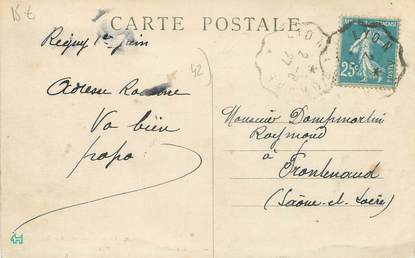 15 €
CARTE POSTALE
Régny 1er juin
42
Adresse Roanne
Va bien
papa
LYON
25c
Monsieur Dampmartin
Raymond
à
Frontenaud
(Saône-et-Loire)